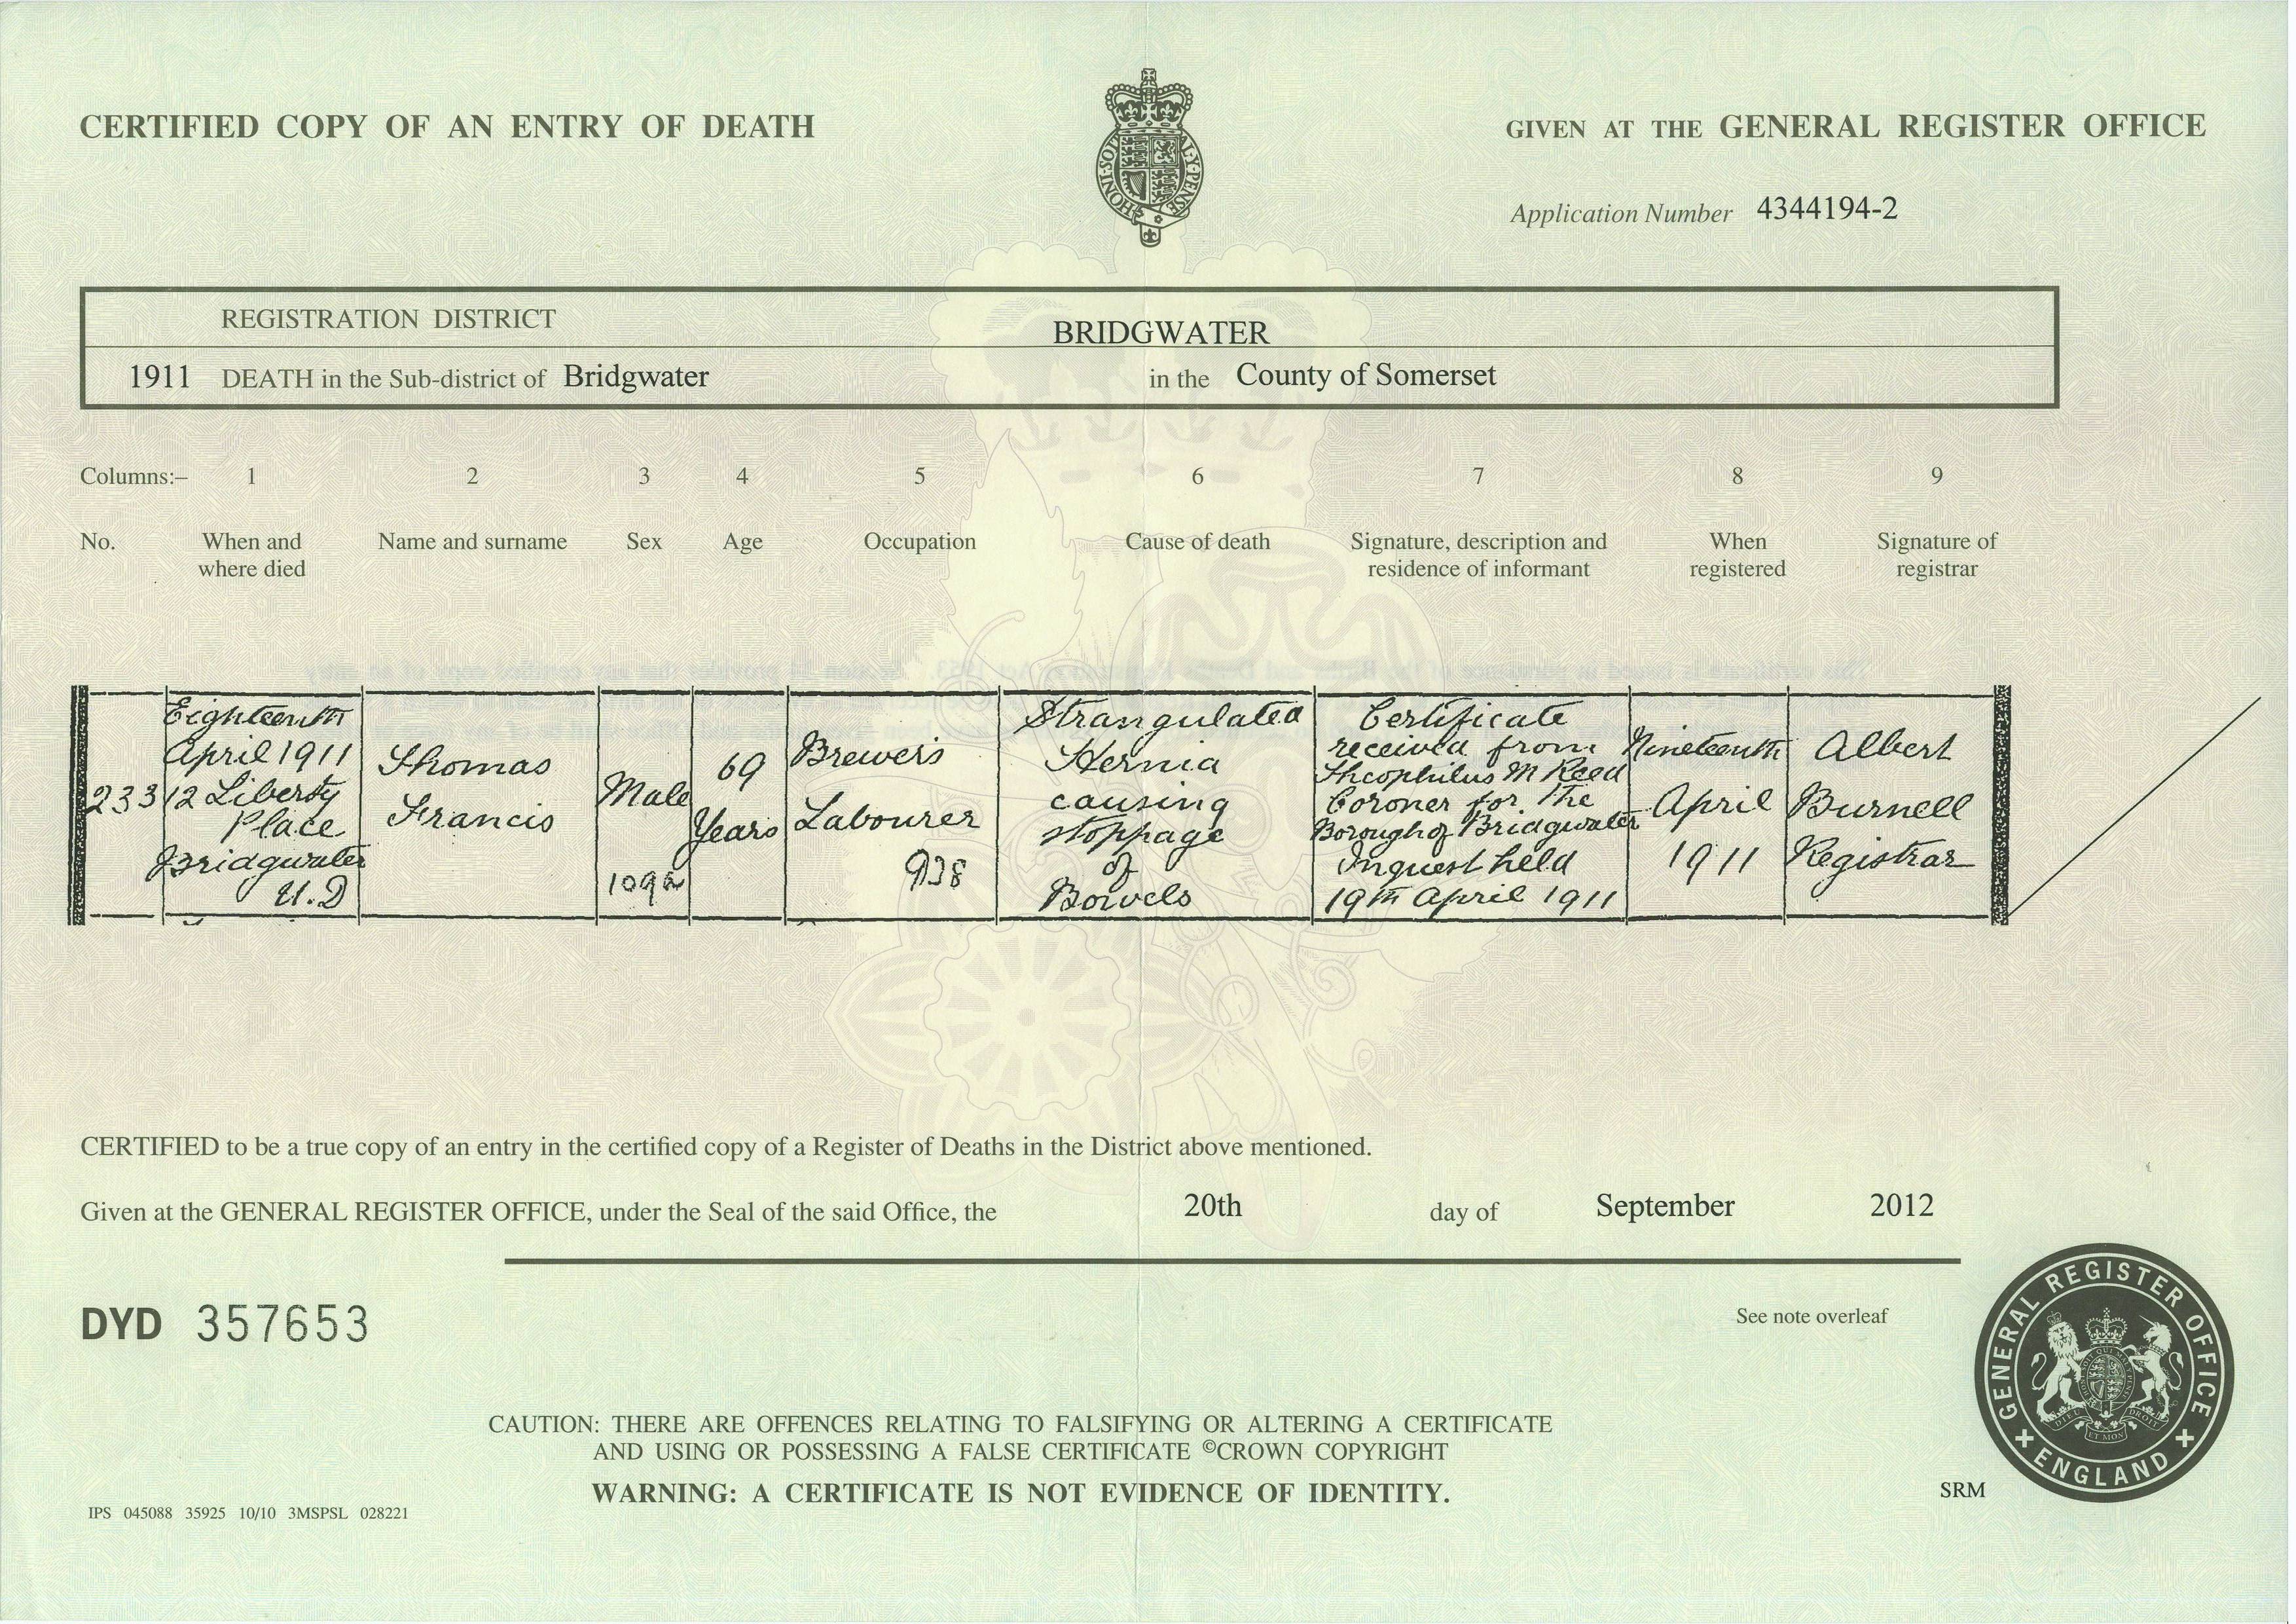 CERTIFIED COPY OF AN ENTRY OF DEATH
GIVEN AT THE GENERAL REGISTER OFFICE
HONI·SOI
AL·Y·PENSE
Application Number 4344194-2
REGISTRATION DISTRICT
BRIDGWATER
1911 DEATH in the Sub-district of Bridgwater in the County of Somerset
Columns:– 1 2 3 4 5 6 7 8 9
No.
When and
where died
Name and surname
Sex
Age
Occupation
Cause of death
Signature, description and
residence of informant
When
registered
Signature of
registrar
233
Eighteenth
April 1911
12 Liberty
Place
Bridgwater
U.D
Thomas
Francis
Male
109
69
Years
Brewer's
Labourer
938
Strangulated
Hernia
causing
stoppage
of
Bowels
Certificate
received from
Theophilus M Reed
Coroner for the
Borough of Bridgwater
Inquest held
19th April 1911
Nineteenth
April
1911
Albert
Burnell
Registrar
CERTIFIED to be a true copy of an entry in the certified copy of a Register of Deaths in the District above mentioned.
Given at the GENERAL REGISTER OFFICE, under the Seal of the said Office, the 20th day of September 2012
DYD 357653
See note overleaf
GENERAL REGISTER OFFICE
ENGLAND
DIEU ET MON DROIT
CAUTION: THERE ARE OFFENCES RELATING TO FALSIFYING OR ALTERING A CERTIFICATE
AND USING OR POSSESSING A FALSE CERTIFICATE ©CROWN COPYRIGHT
WARNING: A CERTIFICATE IS NOT EVIDENCE OF IDENTITY.
SRM
IPS 045088 35925 10/10 3MSPSL 028221